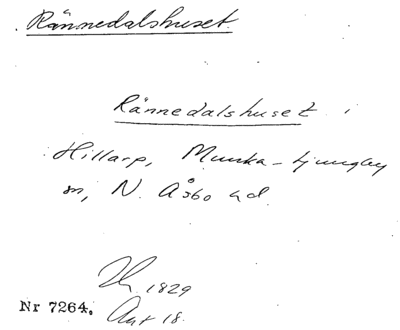 Rännedalshuset.
Rännedalshuset i
Hillarp, Munka-Ljungby
sn, N. Åsbo hd.
1829
Nr 7264. Akt 18.